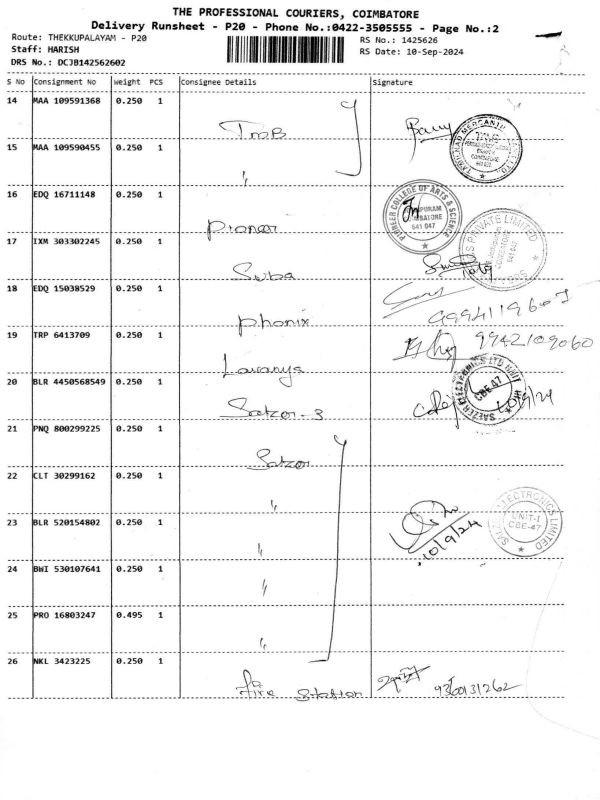 THE PROFESSIONAL COURIERS, COIMBATORE
Delivery Runsheet - P20 - Phone No.:0422-3505555 - Page No.:2
Route: THEKKUPALAYAM - P20
RS No.: 1425626
Staff: HARISH
RS Date: 10-Sep-2024
DRS No.: DCJB142562602
S No Consignment No Weight PCS Consignee Details Signature
14 MAA 109591368 0.250 1
TMB
15 MAA 109590455 0.250 1
"
TAMILNAD MERCANTILE
16 EDQ 16711148 0.250 1
Pioneer
PIONEER COLLEGE OF ARTS & SCIENCE
641 047
17 IXM 303302245 0.250 1
Suba
PRIVATE LIMITED
18 EDQ 15038529 0.250 1
Phonix
19 TRP 6413709 0.250 1
Lavanya
9942109060
20 BLR 4450568549 0.250 1
Salzer-3
CBE-47
21 PNQ 800299225 0.250 1
Salzer
22 CLT 30299162 0.250 1
"
23 BLR 520154802 0.250 1
"
10/9/24
ELECTRONICS LIMITED
UNIT-I
CBE-47
24 BWI 530107641 0.250 1
"
25 PRO 16803247 0.495 1
"
26 NKL 3423225 0.250 1
Fire Station